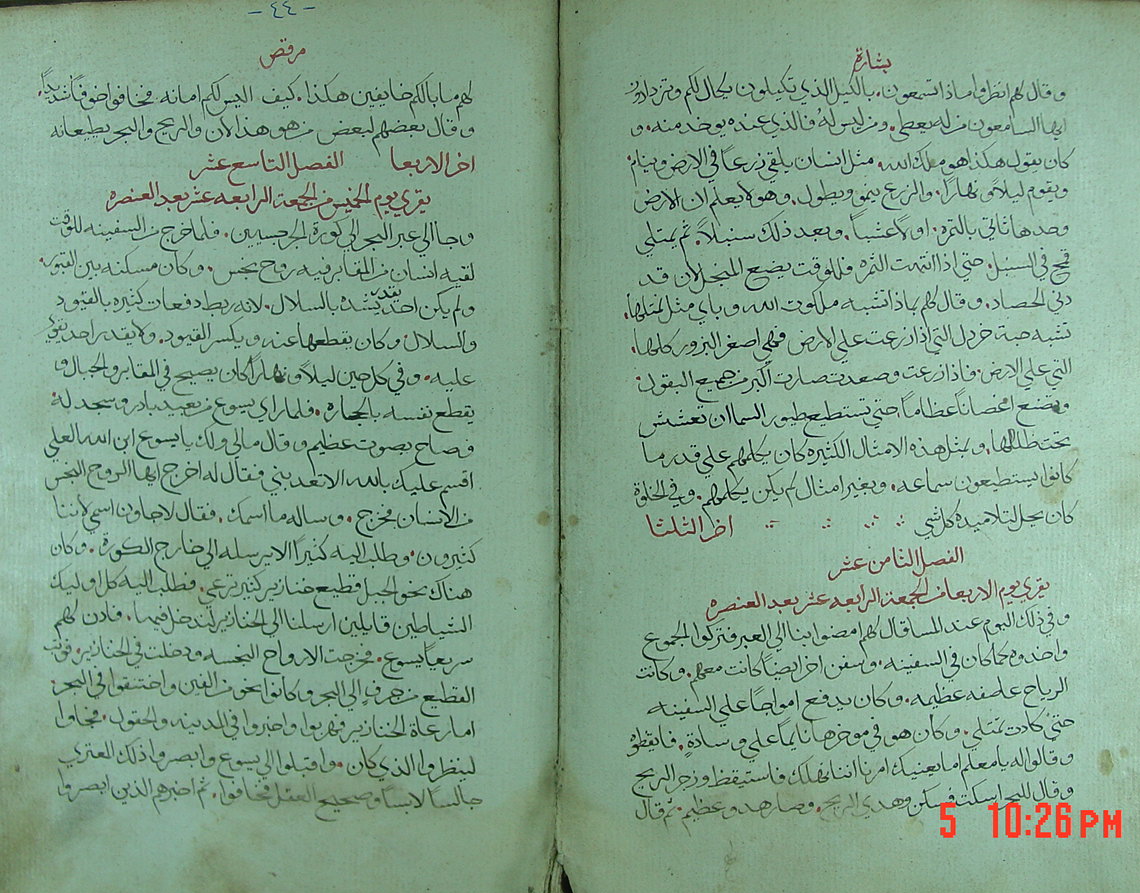 بشارة
وقال لهم انظروا ماذا تسمعون. بالكيل الذي تكيلون يكال لكم وتزدادون
ايها السامعون من له يعطى. ومن ليس له فالذي عنده يوخد منه. و
كان يقول هكذا هو ملك الله. مثل انسان يلقي زرعاً في الارض وينام
ويقوم ليلاً ونهاراً. والزرع ينمو ويطول. وهو لا يعلم لان الارض
وحدها تاتي بالثمره. اولاً عشباً. وبعد ذلك سنبلاً. ثم يمتلي
قمح في السبل. حتي اذا انتهت الثمره فللوقت يضع المنجل لان قد
دنى الحصاد. وقال لهم بماذا نشبه ملكوت الله وباي مثل نمثلها.
تشبه حبة خردل التي اذا زرعت علي الارض فهي اصغر البزور كلها.
التي علي الارض. فاذا زرعت وصعدت صارت اكبر من جميع البقول.
وتصنع اغصاناً عظاماً. حتي تستطيع طيور السما ان تعشش
تحت ظلالها. وبمثل هذه الامثال الكثيره كان يكلمهم علي قدر ما
كانوا يستطيعون سماعه. وبغير امثال لم يكن يكلمهم. وفي الخلوة
كان يحل لتلاميذه كل شي اخر الثلثا
الفصل الثامن عشر
يقري يوم الاربعا من الجمعة الرابعه عشر بعد العنصره
وفي ذلك اليوم عند المسا قال لهم امضوا بنا الي العبر فتركوا الجموع
واخدوه كما كان في السفينه. وسفن اخر ايضاً كانت معهم. وكانت
الرياح عاصفه عظيمه. وكان يدفع امواجاً علي السفينه
حتي كادت تمتلي. وكان هو في موخرها نايماً علي وسادةٍ. فايقظوه
وقالوا له يا معلم اما يعنيك امرنا اننا نهلك فاستيقظ وزجر الريح
وقال للبحر اسكت فسكن وهدي الريح. وصار هدو عظيم. ثم قال
-٤٤-
مرقص
لهم ما بالكم خايفين هكذا. كيف اليس لكم امانه. فخافوا خوفاً شديداً.
وقال بعضهم لبعض من هو هذا لان والريح والبحر يطيعانه
اخر الاربعا الفصل التاسع عشر
يقري يوم الخميس من الجمعة الرابعه عشر بعد العنصره
وجا الي عبر البحر الي كورة الجرجسيين. فلما خرج من السفينه للوقت
لقيه انسان من المقابر فيه روح نجس. وكان مسكنه بين القبور
ولم يكن احد يقدر يشده بالسلال. لانه ربط دفعات كثيره بالقيود
والسلال وكان يقطعها عنه ويكسر القيود. ولا يقدر احد يقوي
عليه. وفي كل حين ليلاً ونهاراً كان يصيح في المقابر والجبال و
يقطع نفسه بالحجاره. فلما راي يسوع من بعيد بادر وسجد له
وصاح بصوت عظيم وقال مالي ولك يا يسوع ابن الله العلي
اقسم عليك بالله الا تعدبني فقال له اخرج ايها الروح النجس
من الانسان فخرج. وساله ما اسمك. فقال لاجاون اسمي لاننا
كثيرون. وطلب اليه كثيراً الا يرسله الي خارج الكورة. وكان
هناك نحو الجبل قطيع خنازير كثير ترعي. فطلب اليه كل اوليك
الشياطين قايلين ارسلنا الي الخنازير لندخل فيها. فادن لهم
سريعاً يسوع. فخرجت الارواح النجسه ودخلت في الخنازير. فوثب
القطيع من جرفٍ الي البحر وكانوا نحو من الفين واختنقوا في البحر.
اما رعاة الخنازير فهربوا واخبروا في المدينه والحقول. فجاوا
لينظروا الذي كان. واقبلوا الي يسوع وابصروا ذلك المعتري
جالساً لابساً وصحيح العقل فخافوا. ثم اخبرهم الذين ابصروا
5 10:26 PM